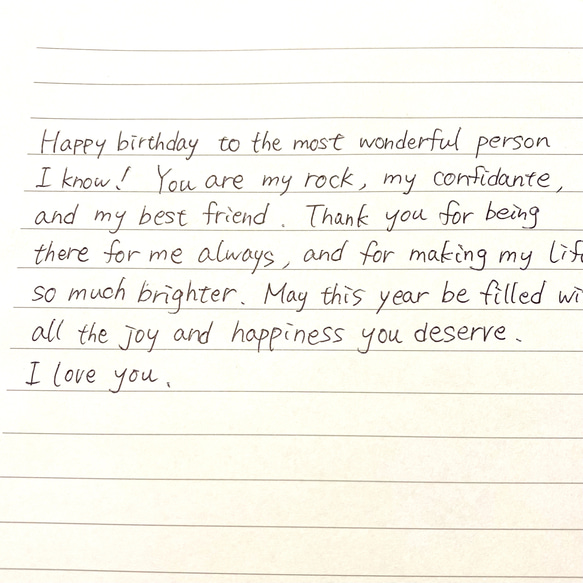 Happy birthday to the most wonderful person
I know! You are my rock, my confidante,
and my best friend. Thank you for being
there for me always, and for making my
so much brighter. May this year be filled
all the joy and happiness you deserve.
I love you.